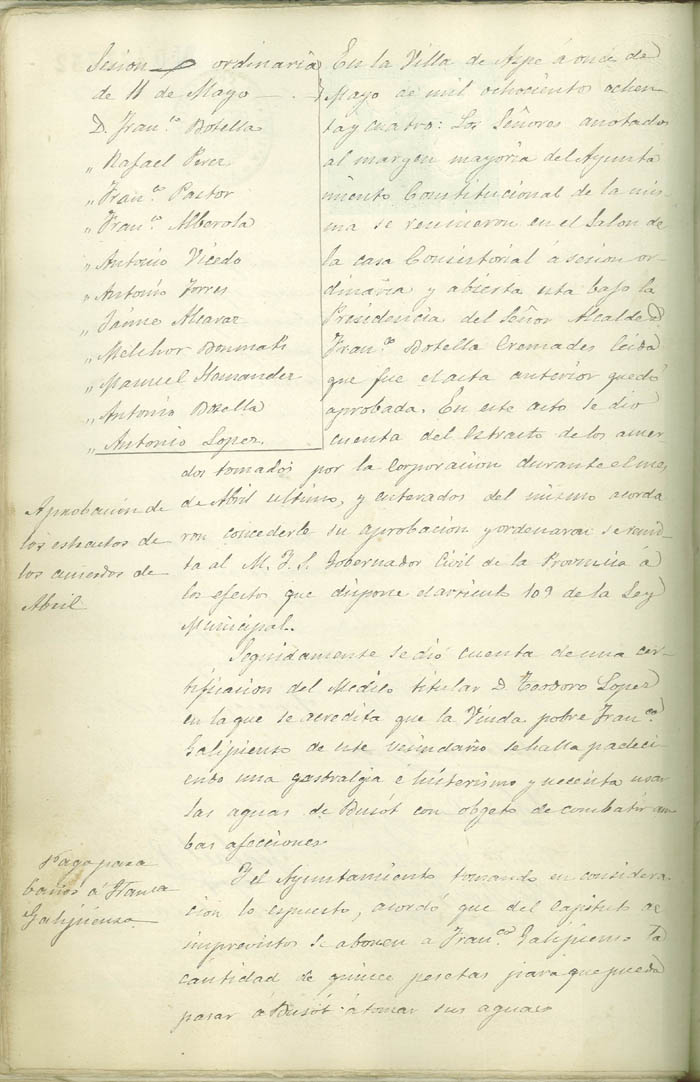 Sesion ordinaria
de 11 de Mayo
D. Fran.co Botella
" Rafael Perez
" Fran.co Pastor
" Fran.co Alberola
" Antonio Vicedo
" Antonio Torres
" Jaime Alcaraz
" Melchor Bonmati
" Manuel Hernandez
" Antonio Botella
" Antonio Lopez
En la Villa de Aspe á once de
Mayo de mil ochocientos ochen
ta y cuatro: Los Señores anotados
al margen mayoria del Ayunta
miento Constitucional de la mis-
ma se reunieron en el Salon de
la casa Consistorial á sesion or-
dinaria y abierta esta bajo la
Presidencia del Señor Alcalde D.
Fran.co Botella Cremades leida
que fue el acta anterior quedó
aprobada. En este acto se dió
cuenta del Estracto de los acuer-
dos tomados por la Corporacion durante el mes
de Abril ultimo, y enterados del mismo acorda
ron concederle su aprobacion y ordenaron se remi-
ta al M. I. S. Gobernador Civil de la Provincia á
los efectos que dispone el articulo 109 de la Ley
Municipal.
Aprobacion de
los estractos de
los acuerdos de
Abril
Seguidamente se dió cuenta de una cer-
tificacion del Medico titular D. Teodoro Lopez
en la que se acredita que la Viuda pobre Fran.ca
Galipienso de este vecindario se halla padeci-
endo una gastralgia é histerismo y necesita usar
las aguas de Busót con objeto de combatir am
bas afecciones
Pago para
baños á Fran.ca
Galipienso
Y el Ayuntamiento tomando en considera
cion lo espuesto, acordó que del Capitulo de
imprevistos se abonen a Fran.ca Galipienso la
cantidad de quince pesetas para que pueda
pasar á Busót á tomar sus aguas